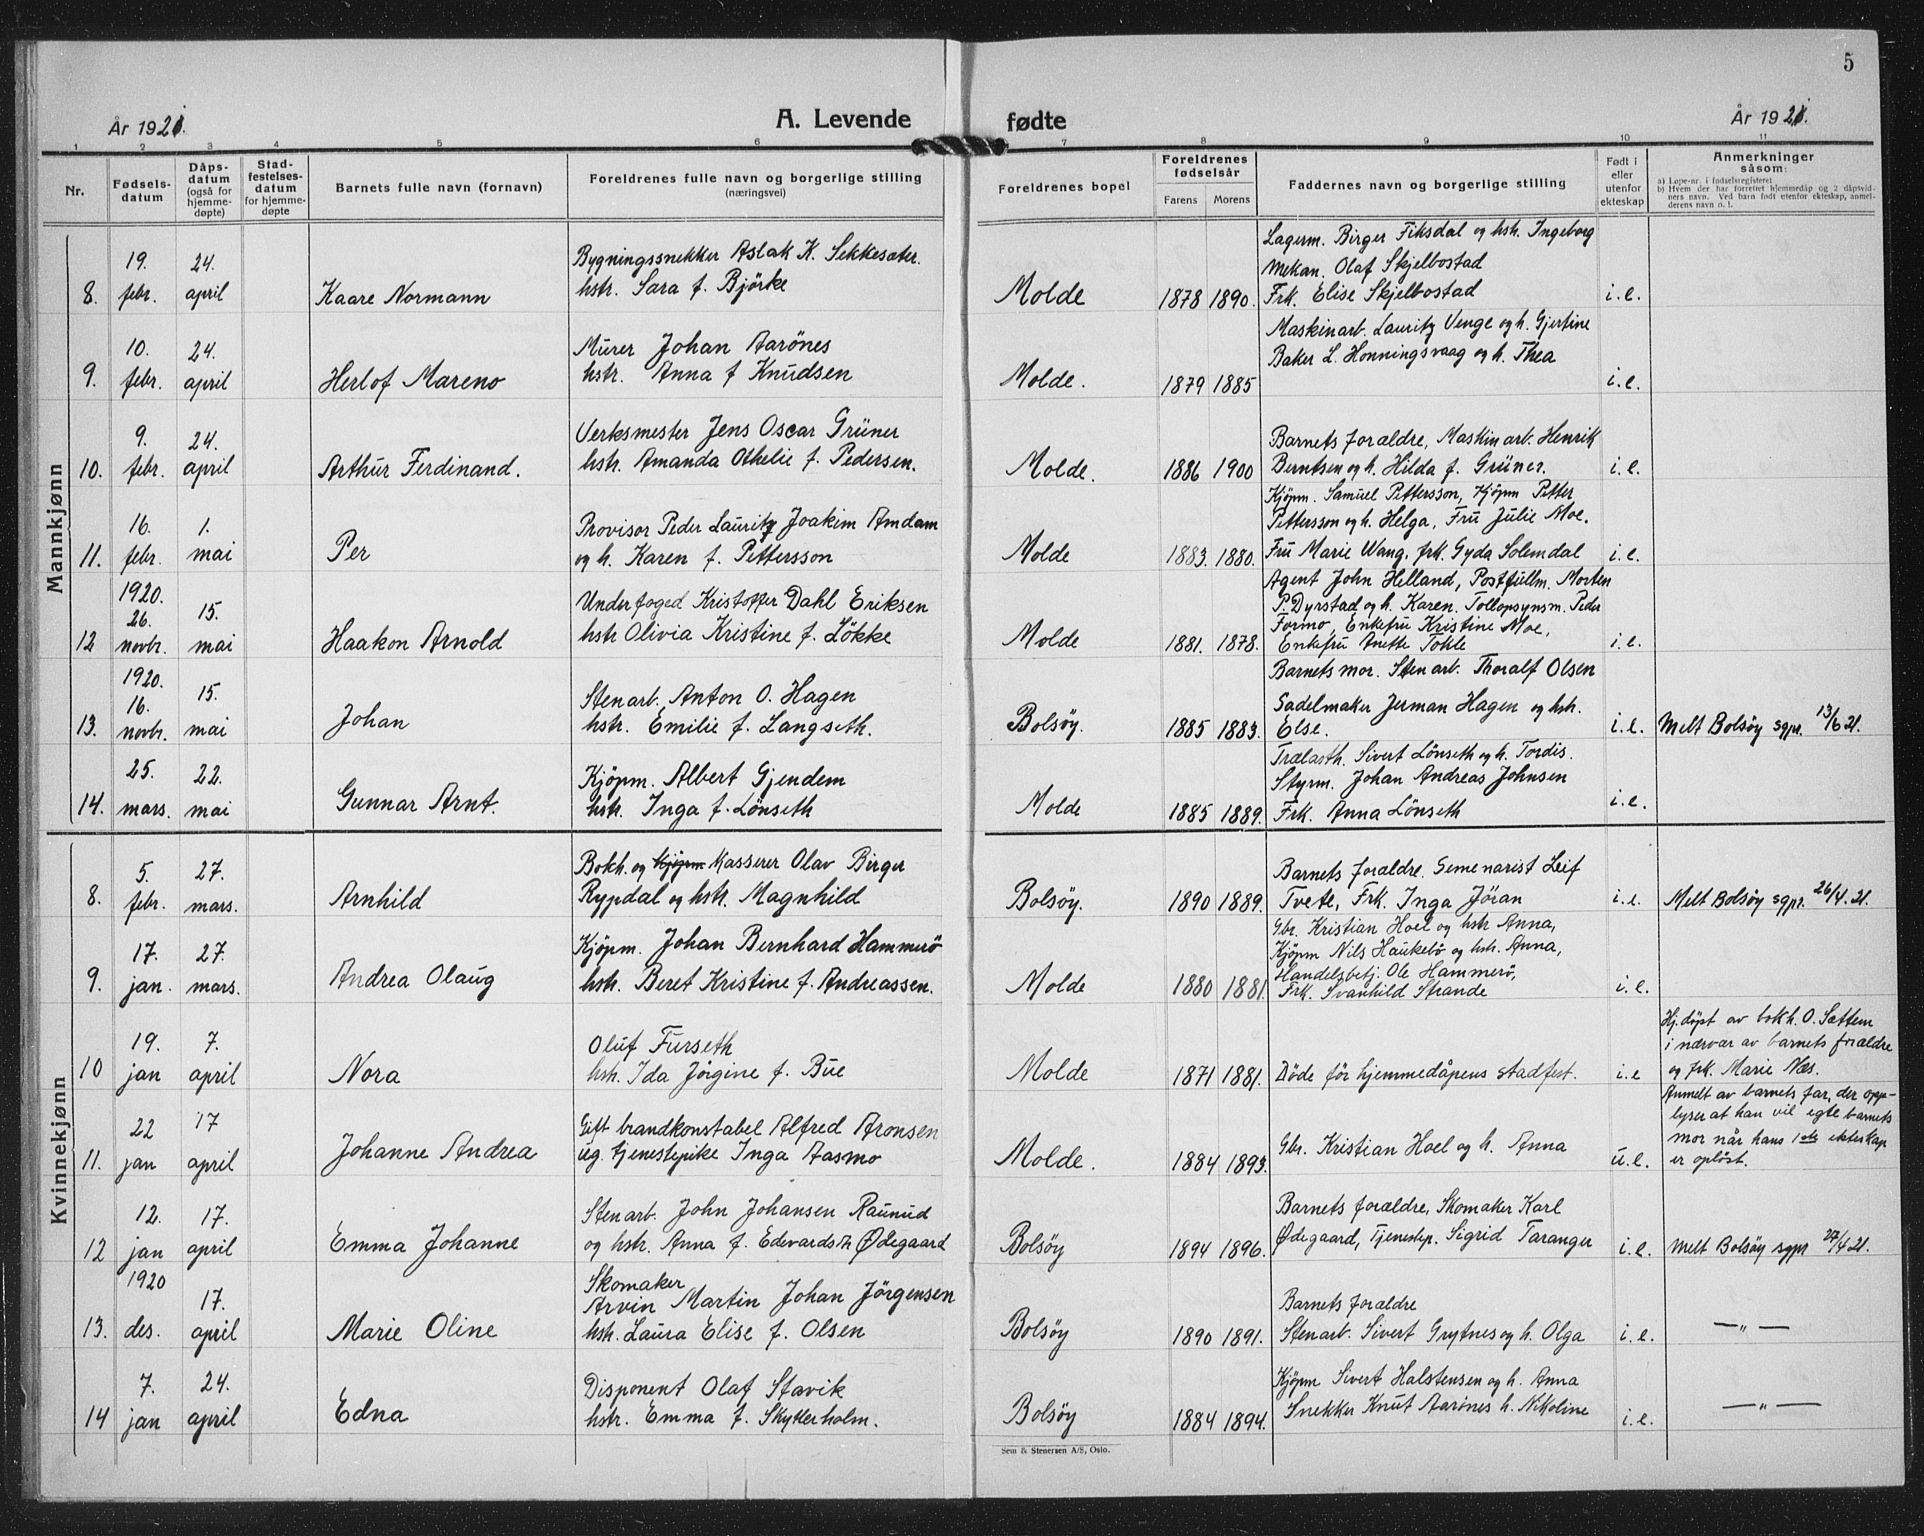 5
År 1921.
A. Levende
fødte
År 1921.
1 2 3 4 5 6 7 8 9 10 11
Nr.
Fødsels-
datum
Dåps-
datum
(også for
hjemme-
døpte)
Stad-
festelses-
datum
for hjemme-
døpte
Barnets fulle navn (fornavn)
Foreldrenes fulle navn og borgerlige stilling
(næringsvei)
Foreldrenes bopel
Foreldrenes
fødselsår
Farens Morens
Faddernes navn og borgerlige stilling
Født i
eller
utenfor
ekteskap
Anmerkninger
såsom:
a) Løpe-nr. i fødselsregisteret
b) Hvem der har forrettet hjemmedåp og 2 dåpsvid-
ners navn. Ved barn født utenfor ekteskap, anmel-
derens navn o. l.
Mannkjønn
19. 24. Bygningssnekker Aslak K. Sekkesæter.
8. febr. april Kaare Normann hstr. Sara f. Björke
Molde 1878 1890.
Lagerm. Birger Fiksdal og hstr. Ingeborg
Mekan. Olaf Skjelbostad
Frk. Elise Skjelbostad i.e.
10. 24. Murer Johan Aarönes
9. febr. april Herlof Mareno hstr. Anna f Knudsen
Molde. 1879 1885
Maskinarb. Lauritz Venge og h. Gjertine
Baker L. Honningsvaag og h. Thea
i.e.
9. 24. Verksmester Jens Oscar Grüner
10. febr. april Arthur Ferdinand. hstr. Amanda Othelie f. Pedersen.
Molde. 1886 1900
Barnets forældre, Maskinarb. Henrik
Berntsen og h. Hilda f. Grüner. i.e.
16. 1. Provisor Peder Lauritz Joakim Amdam
11. febr. mai Per og h. Karen f. Pettersson
Molde 1883. 1880.
Kjöpm. Samuel Pettersson, Kjöpm Petter
Pettersson og h. Helga, Fru Julie Moe.
Fru Marie Wang, frk. Gyda Solemdal i.e.
1920.
26. 15. Underfoged Kristoffer Dahl Eriksen
12 novbr. mai Haakon Arnold hstr Olivia Kristine f. Lökke
Molde 1881. 1878.
Agent John Helland, Postfullm. Morten
P. Dyrstad og h. Karen. Tollopsynsm. Peder
Formo, Enkefru Kristine Moe,
Enkefru Anette Tokle i.e.
1920.
16. 15. Stenarb. Anton O. Hagen
13. novbr. mai Johan hstr. Emilie f. Langseth.
Bolsöy. 1885 1883.
Barnets mor. Stenarb. Thoralf Olsen
Sadelmaker Jerman Hagen og hstr.
Else. i.e. Melt Bolsöy sgpr. 13/6 21.
25. 22. Kjöpm. Albert Gjendem
14. mars. mai Gunnar Arnt. hstr. Inga f. Lönseth
Molde 1885 1889.
Trælasth. Sivert Lönseth og h. Tordis.
Styrm. Johan Andreas Johnsen
Frk. Anna Lönseth i.e.
Kvinnekjønn
5. 27. Bokh. og Kjöpm Kasserer Olav Birger
8. febr. mars. Arnhild Rypdal og hstr. Magnhild
Bolsöy. 1890 1889.
Barnets forældre. Semenarist Leif
Tvete, Frk. Inga Jöran i.e. Melt Bolsöy sgpr. 26/4.21.
17. 27. Kjöpm. Johan Bernhard Hammerö
9. jan. mars. Andrea Olaug hstr. Beret Kristine f. Andreassen.
Molde 1880 1881.
Gbr. Kristian Hoel og hstr Anna,
Kjöpm Nils Haukebö og hstr. Anna,
Handelsbetj. Ole Hammerö,
Frk. Svanhild Strande i.e.
19. 7. Oluf Furseth
10 jan april Nora hstr. Ida Jörgine f. Bue
Molde 1871 1881. Döde för hjemmedåpens stadfest. i.e
Hj. döpt av bokh. O. Sættem
i nærvær av barnets forældre
og frk. Marie Næs.
22 17 Gift brandkonstabel Alfred Aronsen
11. jan april Johanne Andrea ug. tjenestepike Inga Aasmo
Molde. 1884 1893. Gbr. Kristian Hoel og h. Anna u.e.
Anmelt av barnets far, der opp-
lyser at han vil egte barnets
mor når hans 1ste ekteskap
er oplöst.
12. 17. Stenarb. John Johansen Raunud
12 jan april Emma Johanne og hstr. Anna f. Edevardstr Ødegaard
Bolsöy 1894 1896.
Barnets forældre, Skomaker Karl
Ødegaard, Tjenestep. Sigrid Taranger i.e. Melt Bolsöy sgpr 27/4 21.
1920 Skomaker
17. Arvin Martin Johan Jörgensen
13. des. april Marie Oline hstr. Laura Elise f. Olsen
Bolsöy 1890 1891.
Barnets forældre
Stenarb. Sivert Grytnes og h. Olga i.e. —„—
7. 24. Disponent Olaf Stavik
14 jan april Edna hstr. Emma f. Skytterholm.
Bolsöy 1884 1894.
Kjöpm Sivert Halstensen og h. Anna
Snekker Knut Aarönes h. Nikoline i.e. —„—
Sem & Stenersen A/S, Oslo.